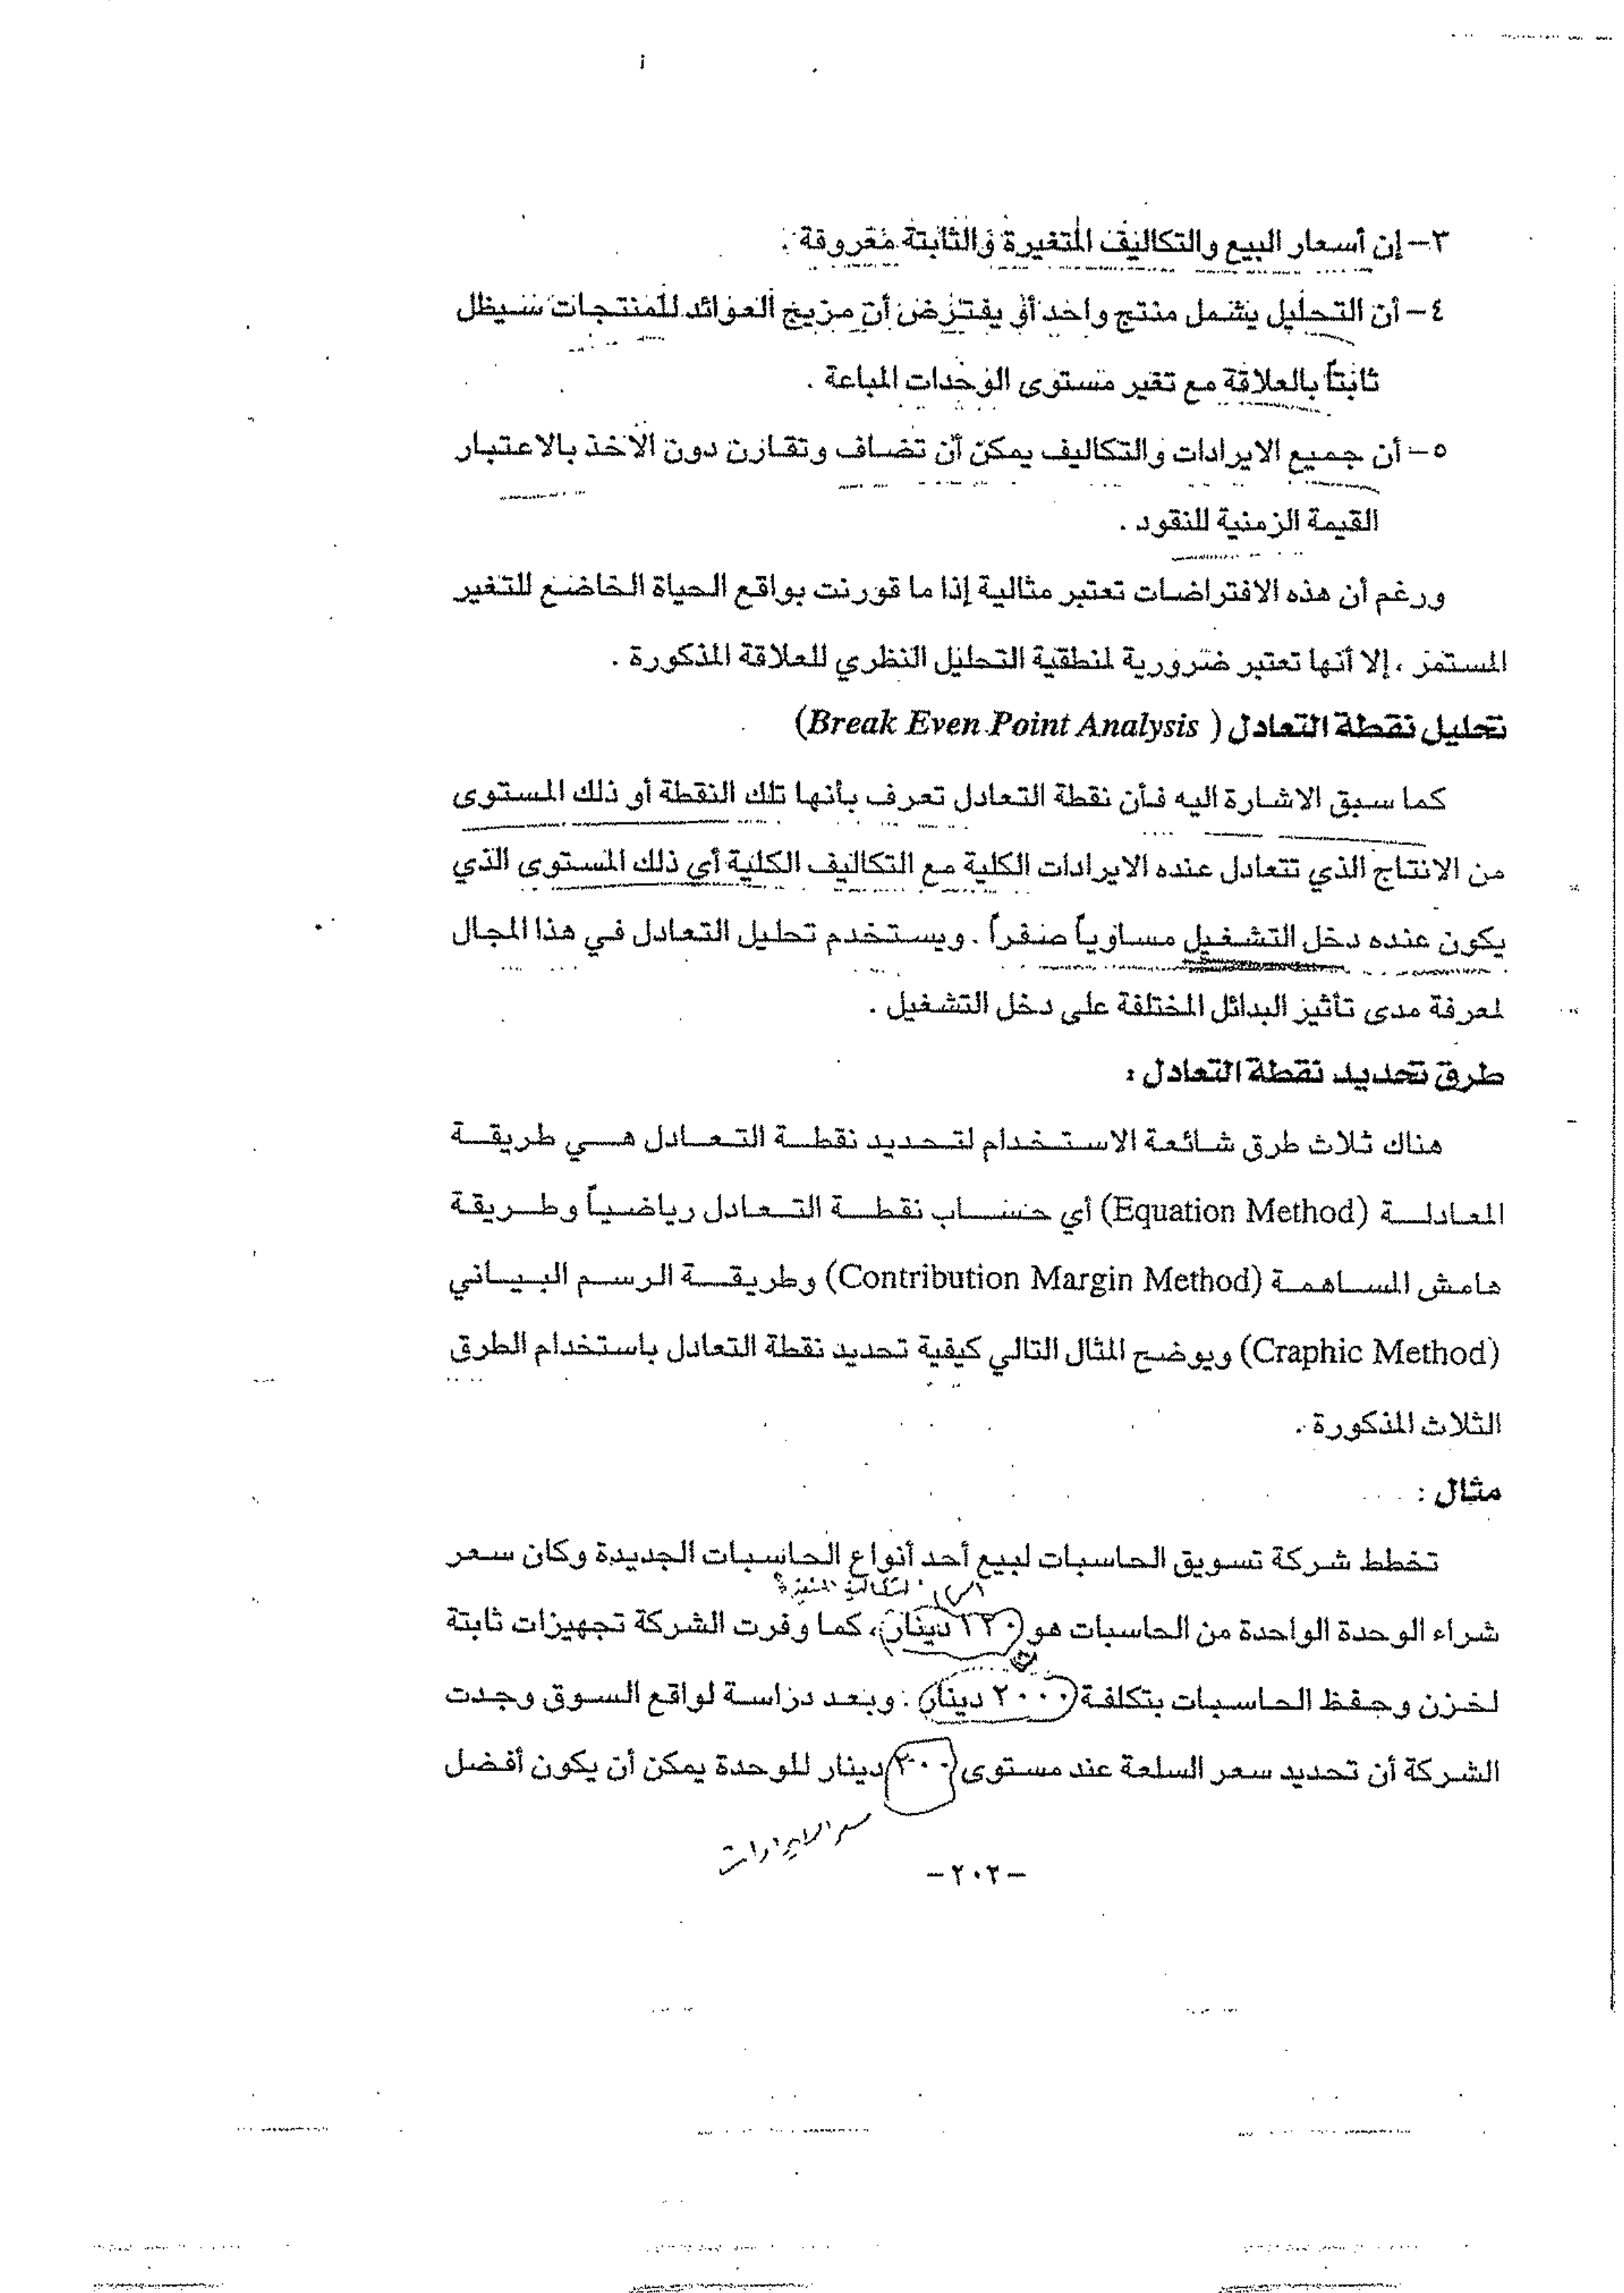 ٣- إن أسعار البيع والتكاليف المتغيرة والثابتة معروفة .
٤- أن التحليل يشمل منتج واحد أو يفترض أن مزيج العوائد للمنتجات سيظل
ثابتاً بالعلاقة مع تغير مستوى الوحدات المباعة .
٥- أن جميع الايرادات والتكاليف يمكن أن تضاف وتقارن دون الأخذ بالاعتبار
القيمة الزمنية للنقود .
ورغم أن هذه الافتراضات تعتبر مثالية إذا ما قورنت بواقع الحياة الخاضع للتغير
المستمر ، إلا أنها تعتبر ضرورية لمنطقية التحليل النظري للعلاقة المذكورة .
تحليل نقطة التعادل ( Break Even Point Analysis)
كما سبق الاشارة اليه فأن نقطة التعادل تعرف بأنها تلك النقطة أو ذلك المستوى
من الانتاج الذي تتعادل عنده الايرادات الكلية مع التكاليف الكلية أي ذلك المستوى الذي
يكون عنده دخل التشغيل مساوياً صفراً . ويستخدم تحليل التعادل في هذا المجال
لمعرفة مدى تأثير البدائل المختلفة على دخل التشغيل .
طرق تحديد نقطة التعادل :
هناك ثلاث طرق شائعة الاستخدام لتحديد نقطة التعادل هي طريقة
المعادلة (Equation Method) أي حساب نقطة التعادل رياضياً وطريقة
هامش المساهمة (Contribution Margin Method) وطريقة الرسم البياني
(Craphic Method) ويوضح المثال التالي كيفية تحديد نقطة التعادل باستخدام الطرق
الثلاث المذكورة .
مثال :
تخطط شركة تسويق الحاسبات لبيع أحد أنواع الحاسبات الجديدة وكان سعر
التكاليف المتغيرة
شراء الوحدة الواحدة من الحاسبات هو ١٢٠ دينار، كما وفرت الشركة تجهيزات ثابتة
لخزن وحفظ الحاسبات بتكلفة ٢٠٠٠ دينار . وبعد دراسة لواقع السوق وجدت
الشركة أن تحديد سعر السلعة عند مستوى ٢٠٠ دينار للوحدة يمكن أن يكون أفضل
سعر الايرادات
-٢٠٢-